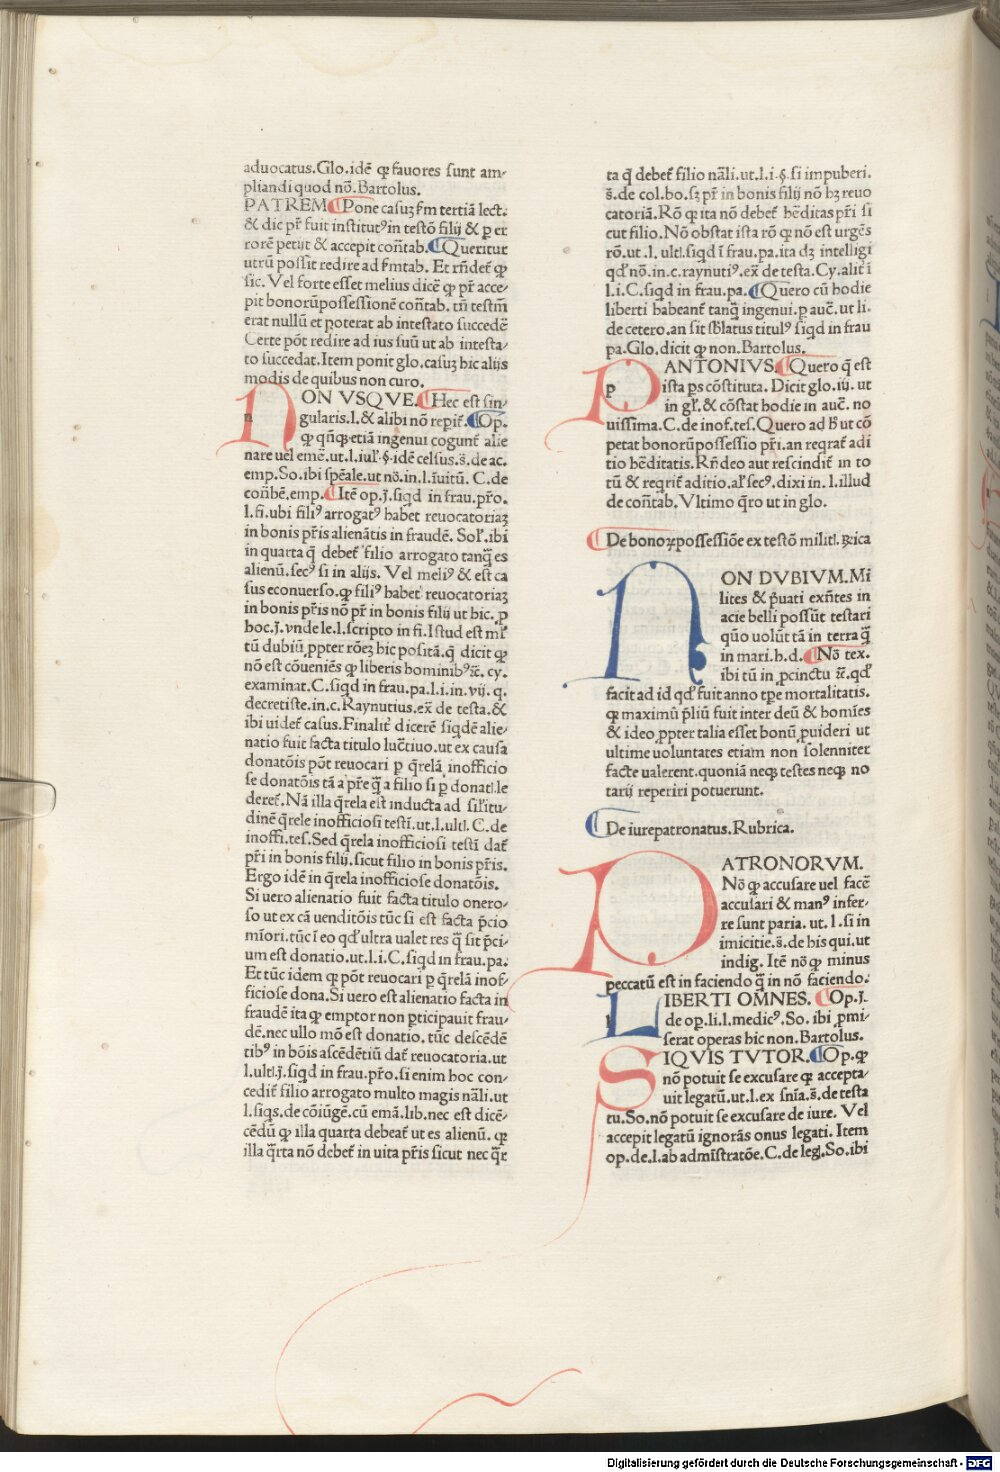 aduocatus.Glo.idē ꝙ fauores sunt am⸗
pliandi quod nō.Bartolus.
PATREM ¶Pone casuꝫ ẜm tertiā lect.
& dic pr̄ fuit institutꝰ in testō filij & ꝑ er
rorē petijt & accepit con̄tab. ¶Queritur
utrū possit redire ad ẜmtab. Et rn̄det̄ ꝙ
sic. Vel forte esset melius dicē ꝙ pr̄ acce⸗
pit bonorūpossessionē con̄tab. tn̄ testm̄
erat nullū et poterat ab intestato succedē
Certe pōt redire ad ius suū ut ab intesta⸗
to succedat.Item ponit glo.casuꝫ hic alijs
modis de quibus non curo.
NON VSQVE. ¶Hec est sin⸗
gularis.l.& alibi nō repit̄. ¶Op.
ꝙ qn̄qꝫ etiā ingenui cogunt̄ alie
nare uel emē.ut.l.iul̄.§.idē celsus.s̄.de ac.
emp.So.ibi spēale.ut nō.in.l.īuitū. C.de
con̄hē.emp. ¶Itē op.J.siqd in frau.pr̄o.
l.fi.ubi filiꝰ arrogatꝰ habet reuocatoriaꝫ
in bonis pr̄is alienātis in fraudē. Sol̄.ibi
in quarta q̄ debet̄ filio arrogato tanq̄ es
alienū.secꝰ si in alijs. Vel meliꝰ & est ca
sus econuerso.ꝙ filiꝰ habet̄ reuocatoriaꝫ
in bonis pr̄is nō pr̄ in bonis filij ut hic. ꝑ
hoc.J.vnde le.l.scripto in fi.Istud est ml̄
tū dubiū ꝓpter rōeꝫ hic positā.q̄ dicit ꝙ
nō est cōueniēs ꝙ liberis hominibꝰ ꝛc̄. cy.
examinat.C.siqd in frau.pa.l.i.in.vij. q.
decretiste.in.c.Raynutius.ex̄ de testa.&
ibi uidet̄ casus.Finalit̄ dicerē siqdē alie⸗
natio fuit facta titulo luc̄tiuo.ut ex causa
donatōis pōt reuocari ꝑ q̄relā inofficio
se donatōis tā a pr̄e q̄ a filio si ꝑ donatl̄.le
deret̄. Nā illa q̄rela est inducta ad sil̄itu⸗
dinē q̄rele inofficiosi testī.ut.l.ultl̄. C.de
inoffi.tes.Sed q̄rela inofficiosi testī dat̄
pr̄i in bonis filij.sicut filio in bonis pr̄is.
Ergo idē in q̄rela inofficiose donatōis.
Si uero alienatio fuit facta titulo onero⸗
so ut ex cā uenditōis tūc si est facta p̄cio
mīori.tūc ī eo qd̓ ultra ualet res q̄ sit p̄ci⸗
um est donatio.ut.l.i.C.siqd in frau.pa.
Et tūc idem ꝙ pōt reuocari ꝑ q̄relā inof⸗
ficiose dona.Si uero est alienatio facta in
fraudē ita ꝙ emptor non ꝑticipauit frau⸗
dē.nec ullo mō est donatio. tūc descēdē
tibꝰ in bōis ascēdētiū dat̄ reuocatoria.ut
l.ultl̄.J.siqd in frau.pr̄o.si enim hoc con⸗
cedit̄ filio arrogato multo magis nāli.ut
l.siqs.de cōiūgē.cū emā.lib.nec est dicē⸗
cēdū ꝙ illa quarta debeat̄ ut es alienū. ꝙ
illa q̄rta nō debet̄ in uita pr̄is sicut nec q̄r
ta q̄ debet̄ filio nāli.ut.l.i.§.si impuberi.
s̄.de col.bo.sꝫ pr̄ in bonis filij nō hꝫ reuo
catoriā.Rō ꝙ ita nō debet̄ hēditas pr̄i si
cut filio.Nō obstat ista rō ꝙ nō est urgēs
rō.ut.l. ultl̄.siqd ī frau.pa.ita dꝫ intelligi
qd̓ nō.in.c.raynutiꝰ.ex̄ de testa.Cy.alit̄ ī
l.i.C.siqd in frau.pa. ¶Quero cū hodie
liberti habeant̄ tanq̄ ingenui.ꝑ auc̄.ut li.
de cetero.an sit sb̄latus titulꝰ siqd in frau
pa.Glo.dicit ꝙ non.Bartolus.
PANTONIVS. ¶Quero q̄ est
ista ꝑs cōstituta. Dicit glo.iij. ut
in gl̄.& cōstat hodie in auc̄. no
uissima.C.de inof.tes.Quero ad hͥ ut cō
petat bonorūpossessio pr̄i.an reqrat̄ adi
tio hēditatis.Rn̄deo aut rescindit̄ in to
tū & reqrit̄ aditio.al̄ secꝰ.dixi in.l.illud
de con̄tab. Vltimo q̄ro ut in glo.
¶De bonoꝝpossessiōe ex testō militl̄. ꝶica
NON DVBIVM.Mi
lites & p̄uati exn̄tes in
acie belli possūt testari
quō uolūt tā in terra q̄
in mari.h.d. ¶Nō tex.
ibi tū in ꝓcinctu ꝛc̄.qd̓
facit ad id qd̓ fuit anno tꝑe mortalitatis.
ꝙ maximū p̄liū fuit inter deū & homīes
& ideo ꝓpter talia esset bonū ꝓuideri ut
ultime uoluntates etiam non solenniter
facte ualerent.quoniā neqꝫ testes neqꝫ no
tarij reperiri potuerunt.
¶De iurepatronatus. Rubrica.
PATRONORVM.
Nō ꝙ accusare uel facē
accusari & manꝰ infer⸗
re sunt paria. ut. l. si in
imicitie.s̄.de his qui.ut
indig. Itē nō ꝙ minus
peccatū est in faciendo q̄ in nō faciendo.
LIBERTI OMNES. ¶Op.J.
de op.li.l.medicꝰ.So. ibi ꝓmi⸗
serat operas hic non.Bartolus.
SIQVIS TVTOR. ¶Op.ꝙ
nō potuit se excusare ꝙ accepta⸗
uit legatū.ut.l.ex sn̄ia.s̄.de testa
tu.So.nō potuit se excusare de iure. Vel
accepit legatū ignorās onus legati. Item
op.de.l.ab admīstratōe.C.de legl̄.So.ibi
Digitalisierung gefördert durch die Deutsche Forschungsgemeinschaft - DFG